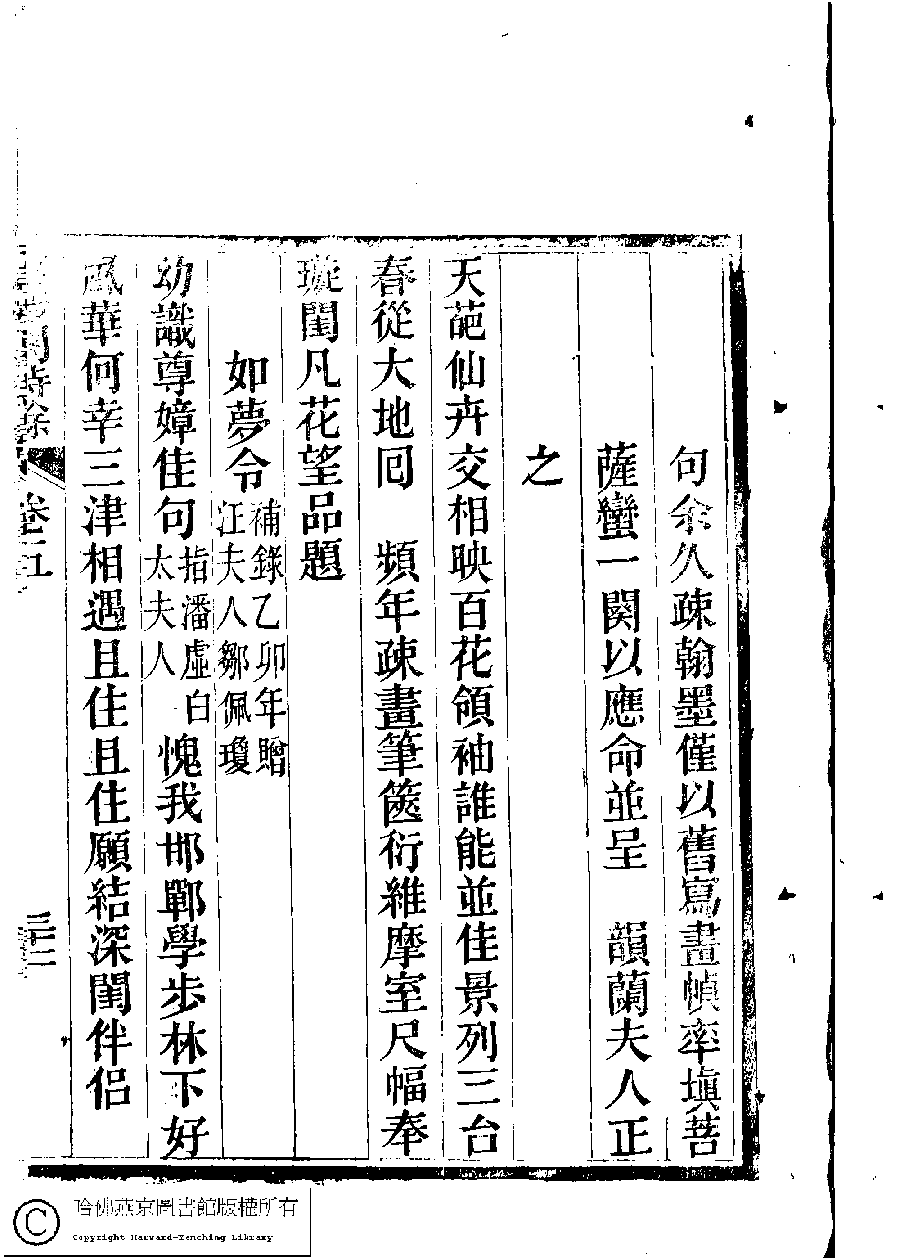 句余久疎翰墨僅以舊寫畫幀率塡菩
薩蠻一闋以應命並呈　韻蘭夫人正
之
天葩仙卉交相映百花領袖誰能並佳景列三台
春從大地囘　頻年疎畫筆篋衍維摩室尺幅奉
璇閨凡花望品題
如夢令補錄乙卯年贈
汪夫人鄒佩瓊
幼識尊嫜佳句指潘虛白
太夫人愧我邯鄲學步林下好
風華何幸三津相遇且住且住願結深閨伴侶
卷五
哈佛燕京圖書館版權所有
Copyright Harvard-Yenching Library